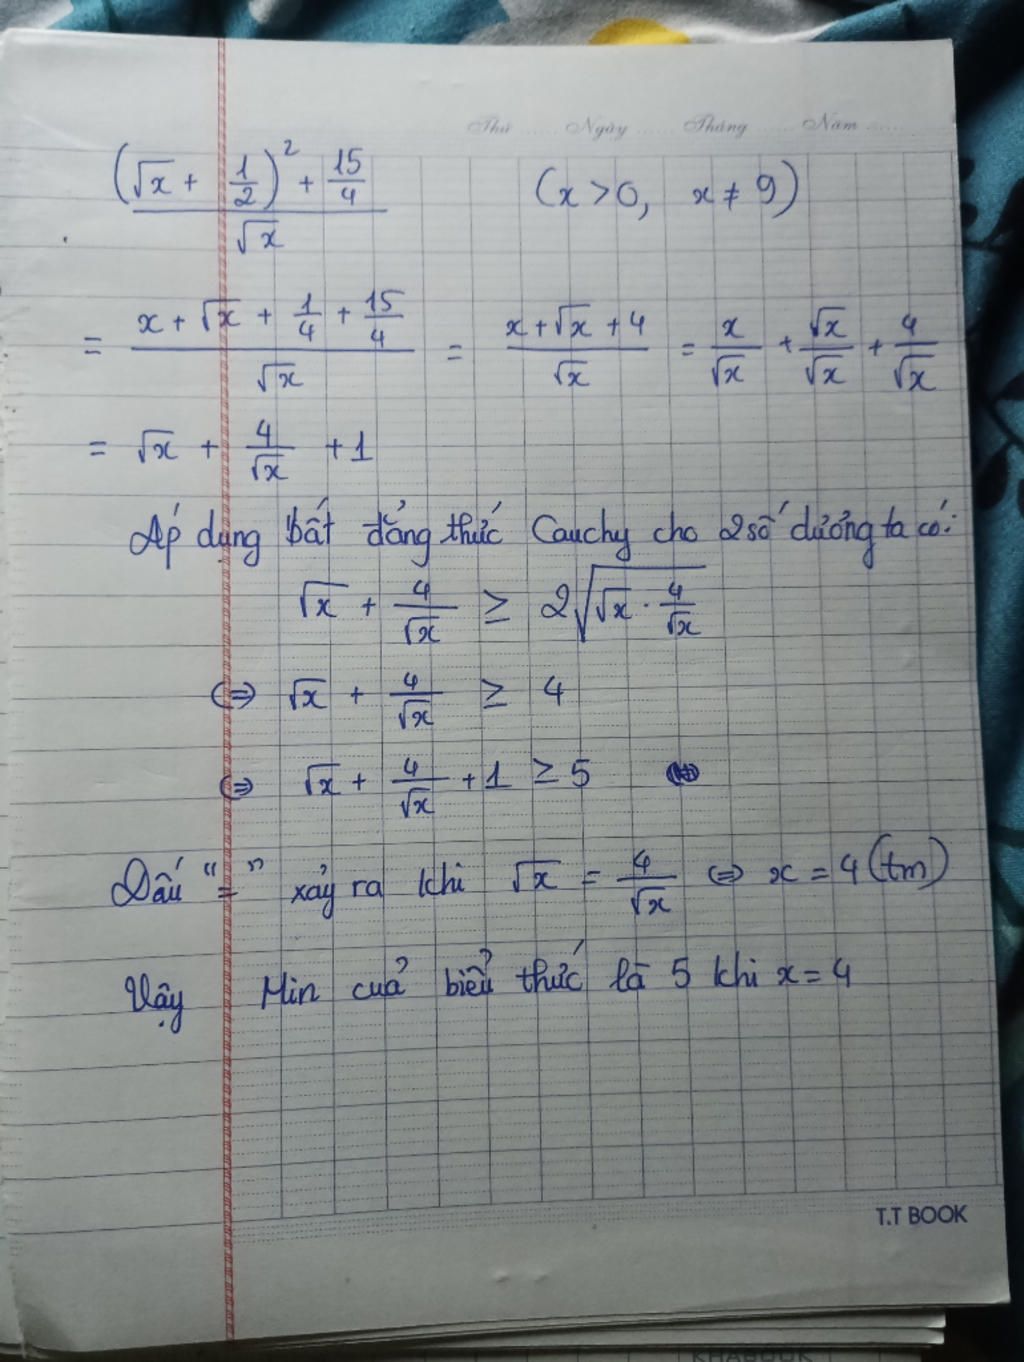 Thứ ...... Ngày ...... Tháng ...... Năm ......
(√x + 1/2)² + 15/4 / √x (x > 0, x ≠ 9)
= x + √x + 1/4 + 15/4 / √x = x + √x + 4 / √x = x/√x + √x/√x + 4/√x
= √x + 4/√x + 1
Áp dụng bất đẳng thức Cauchy cho 2 số dương ta có:
√x + 4/√x ≥ 2√(√x · 4/√x)
⇔ √x + 4/√x ≥ 4
⇔ √x + 4/√x + 1 ≥ 5
Dấu "=" xảy ra khi √x = 4/√x ⇔ x = 4 (tm)
Vậy Min của biểu thức là 5 khi x = 4
T.T BOOK